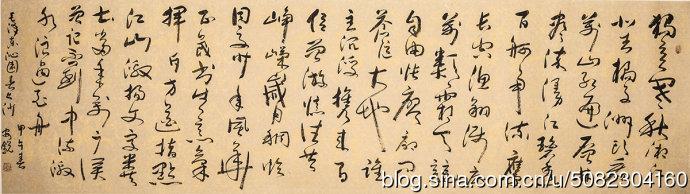 独立寒秋湘江
北去橘子洲头看
万山红遍层林
尽染漫江碧透
百舸争流鹰击
长空鱼翔浅底
万类霜天竞
自由怅寥廓问
苍茫大地谁
主沉浮携来百
侣曾游忆往昔
峥嵘岁月稠恰
同学少年风华
正茂书生意气
挥斥方遒指点
江山激扬文字粪
土当年万户侯
曾记否到中流击
水浪遏飞舟
毛泽东沁园春长沙
甲午春
blog.sina.com.cn/u/5082304160